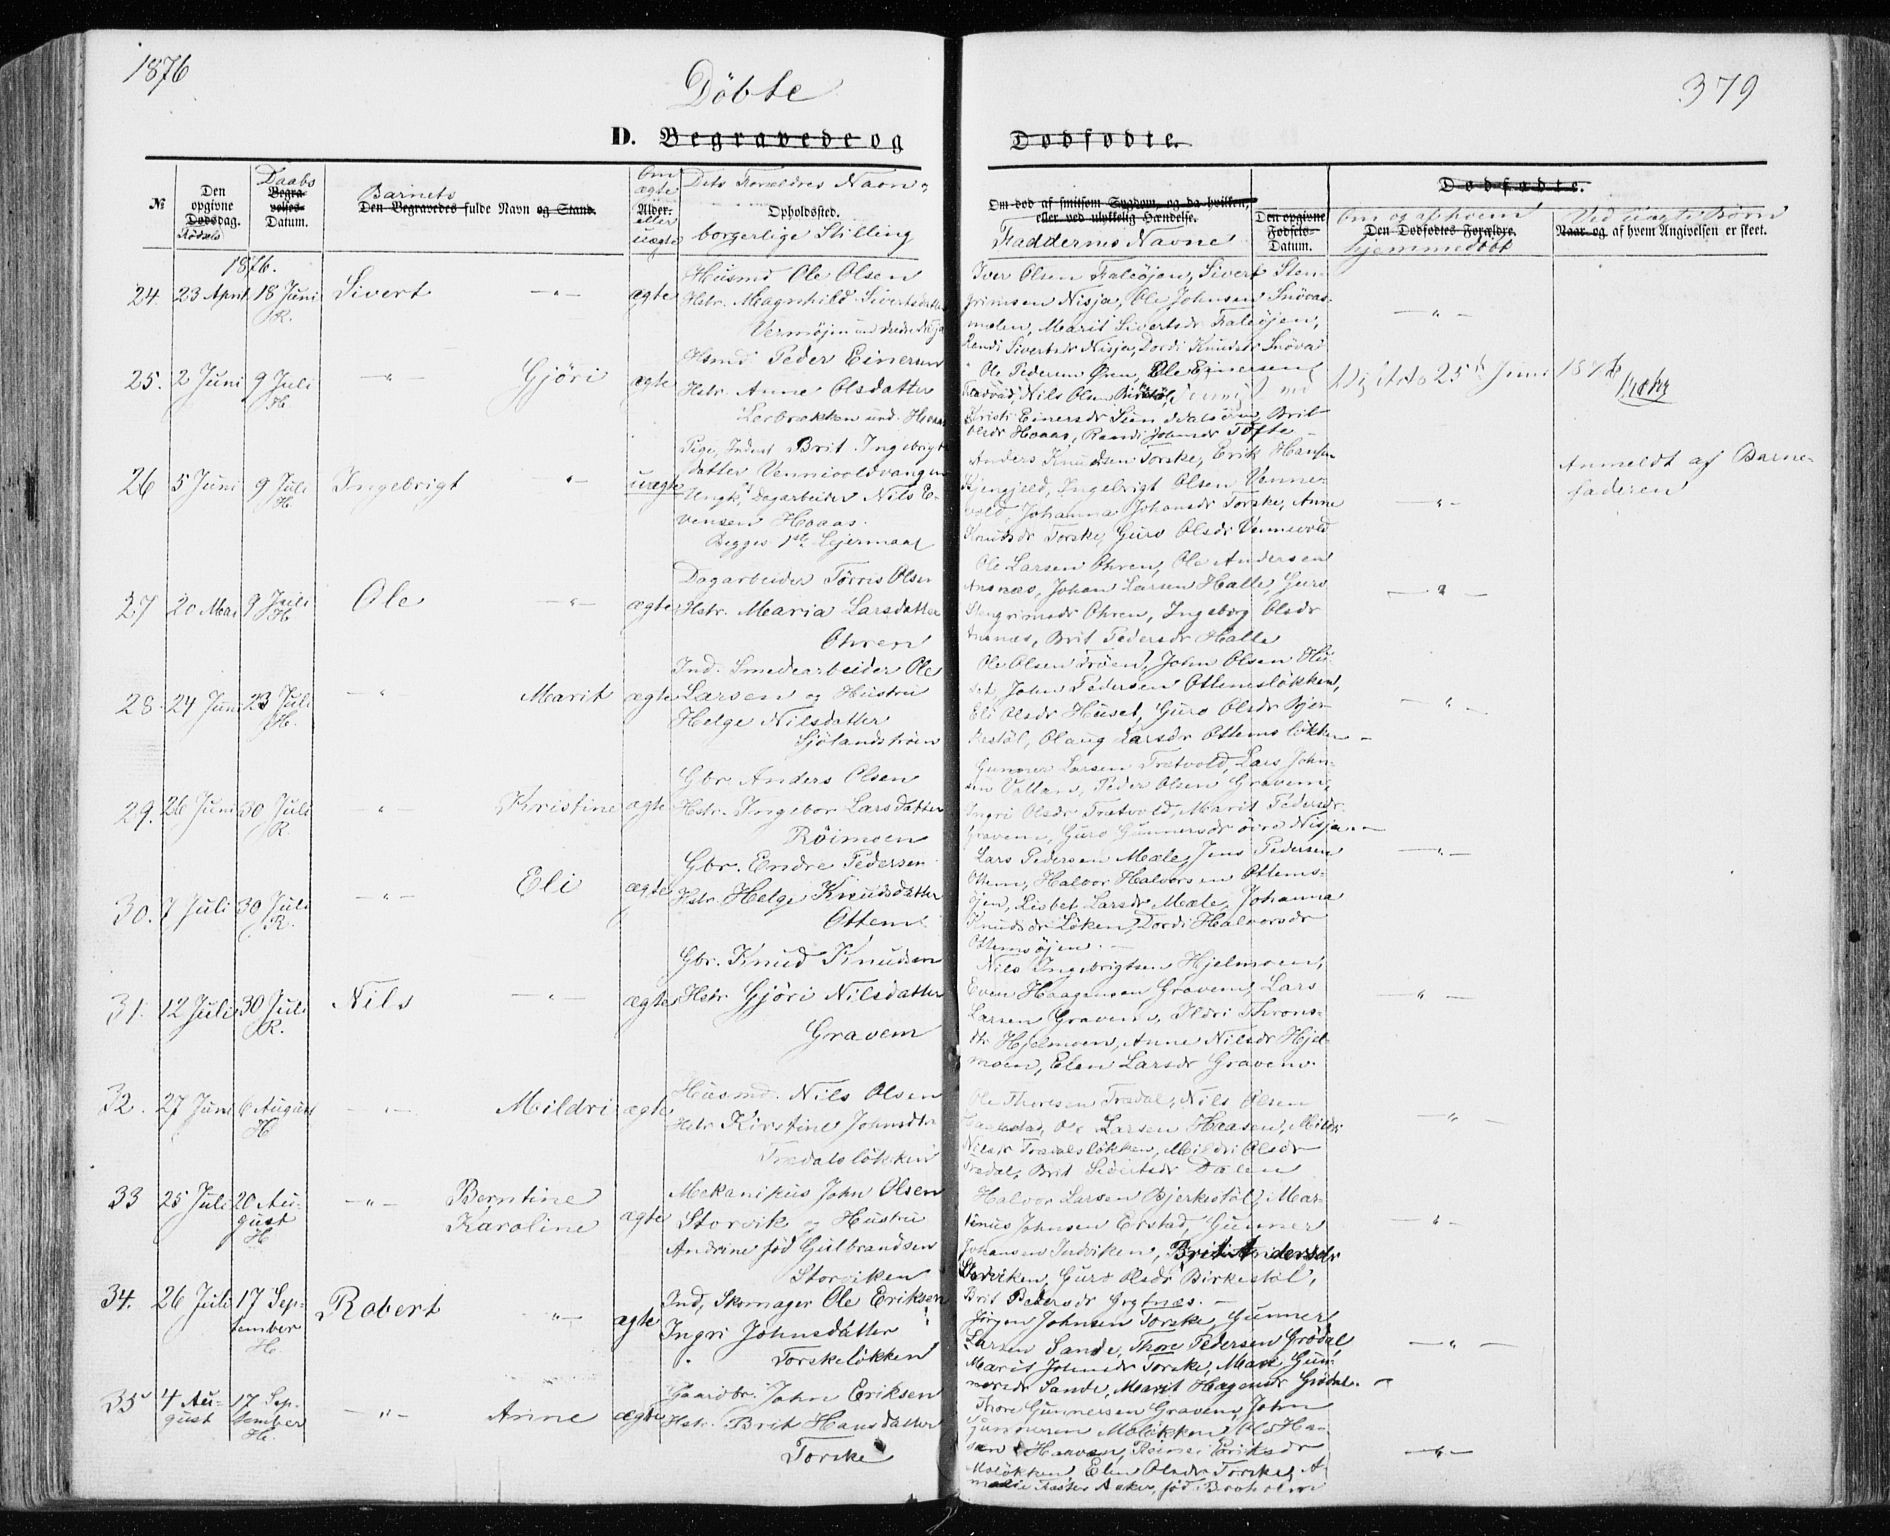 1876
Döbte
379
D. Begravede og Dødfødte.
№
Den opgivne Dødsdag.
Fødsels
Daabs
Begravelses-Datum.
Barnets
Den Begravedes fulde Navn og Stand.
Om ægte eller uægte
Alder.
Dets Forældres Navn,
Opholdssted.
borgerlige Stilling
Om død af smitsom Sygdom, og da hvilken,
eller ved ulykkelig Hændelse.
Faddernes Navne
Den opgivne Fødsels-Datum.
Dødfødte.
Om og af hvem
Den Dødfødtes Forældre.
hjemmedöbt
Ved uægte Börn
Naar og af hvem Angivelsen er skeet.
1876.
24. 23 April 18 Juni R. Sivert — " — ægte
Husmd Ole Olsen
Hstr. Magnhild Sivertsdatter
Vermøjen und nedre Nisja
Iver Olsen Faleöjen, Sivert Sten-
grimsen Nisja, Ole Johnsen Snövas-
melen, Marit Sivertsdr Faleöjen,
Randi Sivertsdr Nisja, Dordi Knudsdr Snöva
— " —
25. 2 Juni 9 Juli H — " — Gjöri ægte
Husmd Peder Einersen
Hstr. Anne Olsdatter
Lerbrækken und. Hoaas
Ole Pedersen Ören, Ole Einersen
Nils Olsen
Kristi Einersdr Brit
Olsdr Hoaas, Randi Johnsdr Tofte
25de Juni 1876
26 5 Juni 9 Juli H. Ingebrigt — " — uægte
Pige, Inderst Brit Ingebrigts-
datter Vennevoldvangen
Ungk. Dagarbeider Nils E-
vensen Hoaas.
Begges 1ste Lejermaal
Anders Knudsen Torske, Erik Hansen
Ingebrigt Olsen Venne-
vold, Johanna Johnsdr Torske, Anne
Knudsdr Torske, Guro Olsdr Vennevold
— " —
Anmeldt af Barne-
faderen
27 20 Mai 9 Juli H Ole — " — ægte
Dagarbeider Törris Olsen
Hstr. Maria Larsdatter
Ohren
Ole Larsen Ohren, Ole Andersen
Ansnæs, Johan Larsen Halle, Guro
Stengrimsdr Ohren, Ingeborg Olsdr
Ansnæs, Brit Pedersdr Halle
— " —
28. 24 Juni 23 Juli H. — " — Marit ægte
Ind. Smedearbeider Ole
Larsen og Hustru
Helge Nilsdatter
Sjölandströen
Ole Olsen Tröen, John Olsen Hu-
set, John Pedersen Ottemslökken,
Eli Olsdr Huset, Guro Olsdr Bjer-
kestöl, Olaug Larsdr Ottemslökken —
— " —
29. 26 Juni 30 Juli R — " — Kristine ægte
Gbr. Anders Olsen
Hstr. Ingebor Larsdatter
Röimoen
Gunner Larsen Trætvold, Lars John-
sen Vullan, Peder Olsen Gravem,
Ingri Olsdr Trætvold, Marit Pedersdr
Gravem, Guro Gunnersdr övre Nisja. —
— " —
30. 7 Juli 30 Juli R. — " — Eli ægte
Gbr. Endre Pedersen
Hstr. Helge Knudsdatter
Ottem
Lars Pedersen Mæle, Jens Pedersen
Ottem, Halvor Halvorsen Ottems-
öjen, Lisbet Larsdr Mæle, Johanna
Knudsdr Löken, Dordi Halvorsdr
Ottemsöjen. —
31. 12 Juli 30 Juli R. Nils — " — ægte
Gbr. Knud Knudsen
Hstr. Gjöri Nilsdatter
Gravem
Nils Ingebrigtsen Hjelmoen,
Even Haagensen Gravem, Lars
Larsen Gravem, Ildri Throns-
dtr Hjelmoen, Anne Nilsdr Hjel-
moen, Elen Larsdr Gravem.
— " —
32. 27 Juni 6 August H — " — Mildri ægte
Husmd. Nils Olsen
Hstr Kirstine Johnsdtr
Trædalslökken
Ole Thoresen Trædal, Nils Olsen
Ole Larsen Haasen, Mildri
Nilsdr Trædalslökken, Mildri Olsdr
Trædal, Brit Sivertsdr Dalen
— " —
33 25 Juli 20 August H — " — Berntine Karoline ægte
Mekanikus John Olsen
Storvik og Hustru
Andrine föd Gulbrandsen
Storviken
Halvor Larsen Bjerkestöl, Mar-
tinus Johnsen Erstad, Gunner
Johansen Indviken, Brit Andersdr
Storviken, Guro Olsdr Birkestöl,
Brit Pedersdr Grytnæs. —
— " —
34. 26 Juli 17 September H. Robert — " — ægte
Ind, Skomager Ole Eriksen
Ingri Johnsdatter
Torskelökken
Jörgen Johnsen Torske, Gunner
Larsen Sande, Thore Pedersen Grödal
Marit Johnsdr Torske, Mari Gun-
nersdr Sande, Marit Hagensdr Grödal. —
— " —
35 4 August 17 September H. — " — Anne ægte
Gaardbr. John Eriksen
Hstr. Brit Hansdatter
Torske
Thore Gunnersen Gravem, John
Gunnersen Molökken, Ole Han-
sen Eriksdr
Molökken, Elen Olsdr Torske, A-
malie föd Broholm
— " —